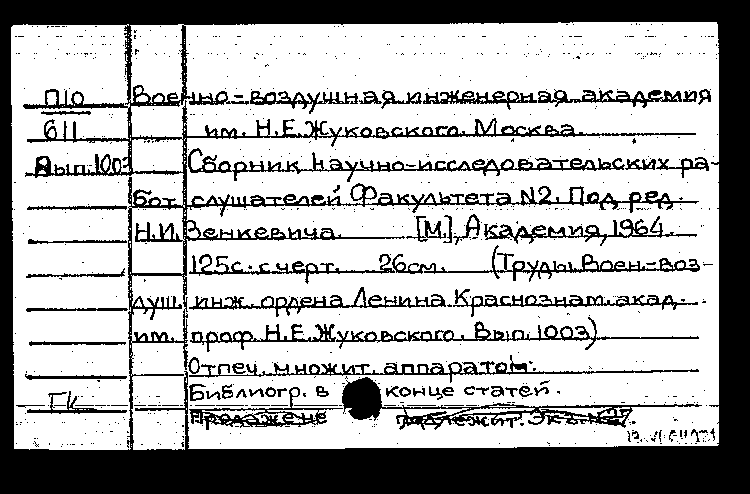 П10 Военно-воздушная инженерная академия
611 им. Н.Е.Жуковского. Москва.
Вып.1003 Сборник научно-исследовательских ра-
бот слушателей Факультета N2. Под ред.
Н.И.Зенкевича. [М.], Академия, 1964.
125с. с черт. 26см. (Труды Воен.-воз-
душ. инж. ордена Ленина Краснознам. акад.
им. проф. Н.Е.Жуковского. Вып. 1003)
Отпеч. множит. аппаратом.
Библиогр. в конце статей.
ГК
Продаже не подлежит. Экз. №27.